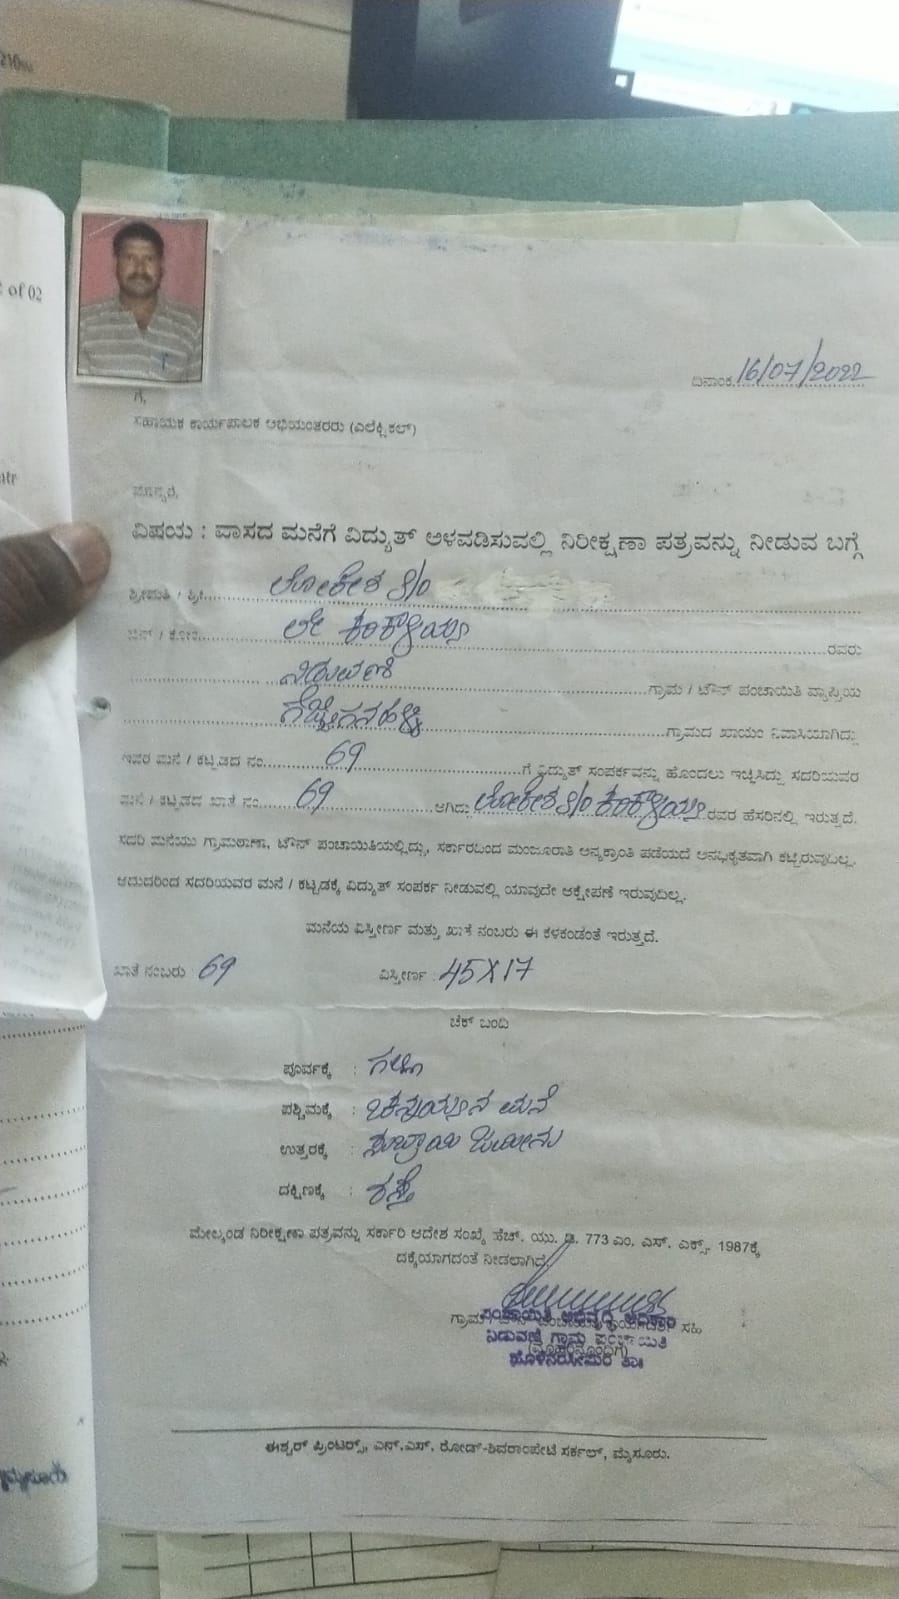 of 02
ದಿನಾಂಕ 16/07/2022
ಗೆ,
ಸಹಾಯಕ ಕಾರ್ಯಪಾಲಕ ಅಭಿಯಂತರರು (ಎಲೆಕ್ಟ್ರಿಕಲ್)
ಮಾನ್ಯರೆ,
ವಿಷಯ : ವಾಸದ ಮನೆಗೆ ವಿದ್ಯುತ್ ಅಳವಡಿಸುವಲ್ಲಿ ನಿರೀಕ್ಷಣಾ ಪತ್ರವನ್ನು ನೀಡುವ ಬಗ್ಗೆ
ಶ್ರೀಮತಿ / ಶ್ರೀ ಲೋಕೇಶ S/o
ಬಿನ್ / ಕೋಂ ಲೇ ರವರು
ನಿಡುವಣಿ ಗ್ರಾಮ / ಟೌನ್ ಪಂಚಾಯಿತಿ ವ್ಯಾಪ್ತಿಯ
ಗ್ರಾಮದ ಖಾಯಂ ನಿವಾಸಿಯಾಗಿದ್ದು
ಇವರ ಮನೆ / ಕಟ್ಟಡದ ನಂ. 69 ಗೆ ವಿದ್ಯುತ್ ಸಂಪರ್ಕವನ್ನು ಹೊಂದಲು ಇಚ್ಛಿಸಿದ್ದು ಸದರಿಯವರ
ಮನೆ / ಕಟ್ಟಡದ ಖಾತೆ ನಂ. 69 ಆಗಿದ್ದು ಲೋಕೇಶ S/o ರವರ ಹೆಸರಿನಲ್ಲಿ ಇರುತ್ತದೆ.
ಸದರಿ ಮನೆಯು ಗ್ರಾಮಠಾಣಾ, ಟೌನ್ ಪಂಚಾಯಿತಿಯಲ್ಲಿದ್ದು, ಸರ್ಕಾರದಿಂದ ಮಂಜೂರಾತಿ ಅನ್ಯಕ್ರಾಂತಿ ಪಡೆಯದೆ ಅನಧಿಕೃತವಾಗಿ ಕಟ್ಟಿರುವುದಿಲ್ಲ.
ಆದುದರಿಂದ ಸದರಿಯವರ ಮನೆ / ಕಟ್ಟಡಕ್ಕೆ ವಿದ್ಯುತ್ ಸಂಪರ್ಕ ನೀಡುವಲ್ಲಿ ಯಾವುದೇ ಆಕ್ಷೇಪಣೆ ಇರುವುದಿಲ್ಲ.
ಮನೆಯ ವಿಸ್ತೀರ್ಣ ಮತ್ತು ಖಾತೆ ನಂಬರು ಈ ಕೆಳಕಂಡಂತೆ ಇರುತ್ತದೆ.
ಖಾತೆ ನಂಬರು : 69 ವಿಸ್ತೀರ್ಣ : 45X17
ಚೆಕ್ ಬಂದಿ
ಪೂರ್ವಕ್ಕೆ : ಗಲ್ಲಿ
ಪಶ್ಚಿಮಕ್ಕೆ : ಮನೆ
ಉತ್ತರಕ್ಕೆ : ಜಮೀನು
ದಕ್ಷಿಣಕ್ಕೆ : ರಸ್ತೆ
ಮೇಲ್ಕಂಡ ನಿರೀಕ್ಷಣಾ ಪತ್ರವನ್ನು ಸರ್ಕಾರಿ ಆದೇಶ ಸಂಖ್ಯೆ ಹೆಚ್. ಯು. ಡಿ. 773 ಎಂ. ಎಸ್. ಎಕ್ಸ್. 1987ಕ್ಕೆ
ದಕ್ಕೆಯಾಗದಂತೆ ನೀಡಲಾಗಿದೆ.
ಪಂಚಾಯಿತಿ ಅಭಿವೃದ್ಧಿ ಅಧಿಕಾರಿ
ಗ್ರಾಮ ಸಹಿ
ನಿಡುವಣಿ ಗ್ರಾಮ ಪಂಚಾಯಿತಿ
(ಮೊಹರಿನೊಂದಿಗೆ)
ಹೊಳೆನರಸೀಪುರ ತಾ॥
ಈಶ್ವರ್ ಪ್ರಿಂಟರ್ಸ್, ಎನ್.ಎಸ್. ರೋಡ್-ಶಿವರಾಂಪೇಟೆ ಸರ್ಕಲ್, ಮೈಸೂರು.